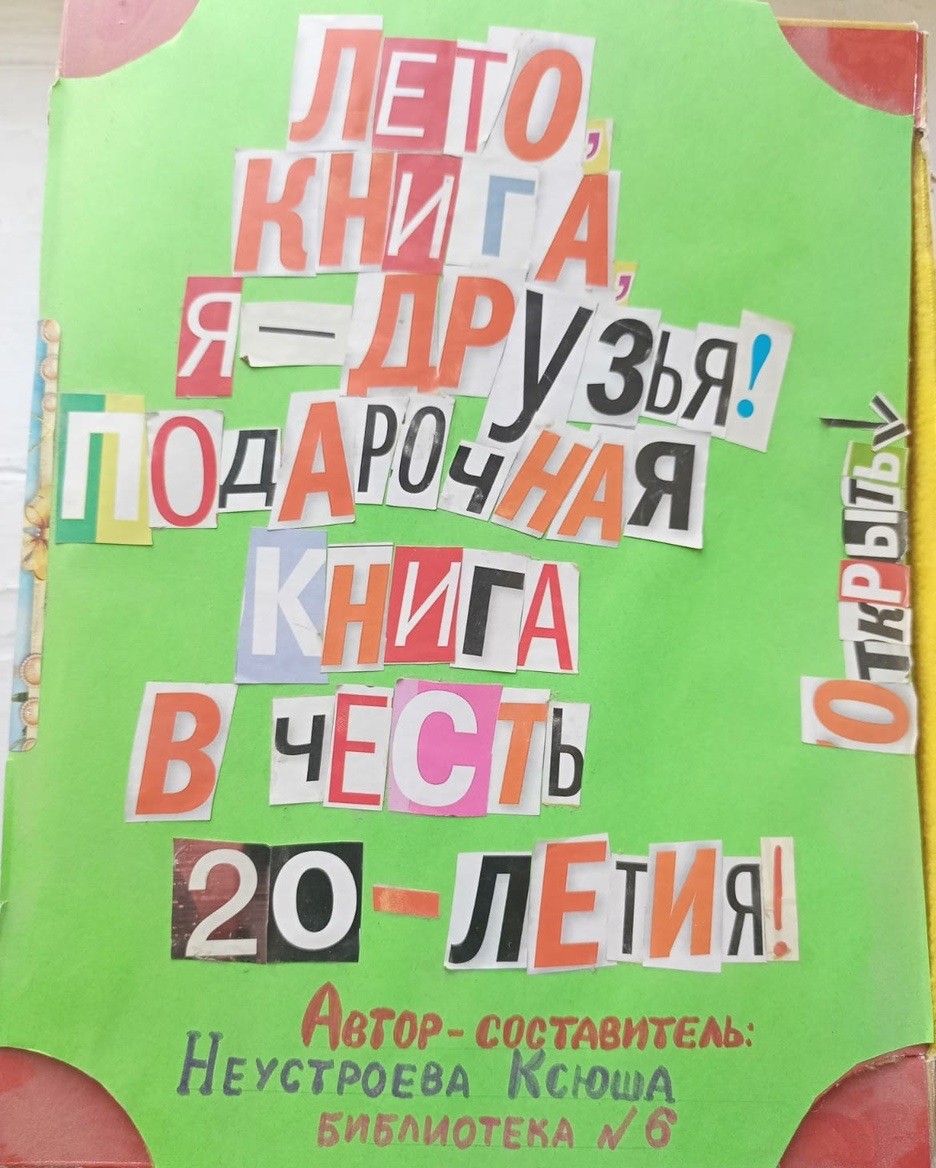 ЛЕТО,
КНИГА,
Я — ДРУЗЬЯ!
ПОДАРОЧНАЯ
КНИГА
В ЧЕСТЬ
20-ЛЕТИЯ!
АВТОР-СОСТАВИТЕЛЬ:
НЕУСТРОЕВА КСЮША
БИБЛИОТЕКА №6
ОТКРЫТЬ